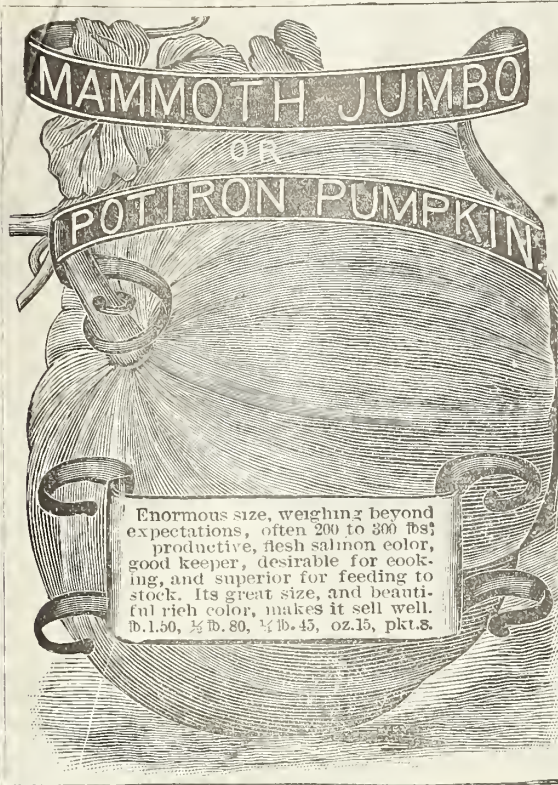 MAMMOTH JUMBO
OR
POTIRON PUMPKIN.
Enormous size, weighing beyond
expectations, often 200 to 300 lbs;
productive, flesh salmon color,
good keeper, desirable for cook-
ing, and superior for feeding to
stock. Its great size, and beauti-
ful rich color, makes it sell well.
lb.1.50, ½ lb. 80, ¼ lb. 45, oz.15, pkt.8.